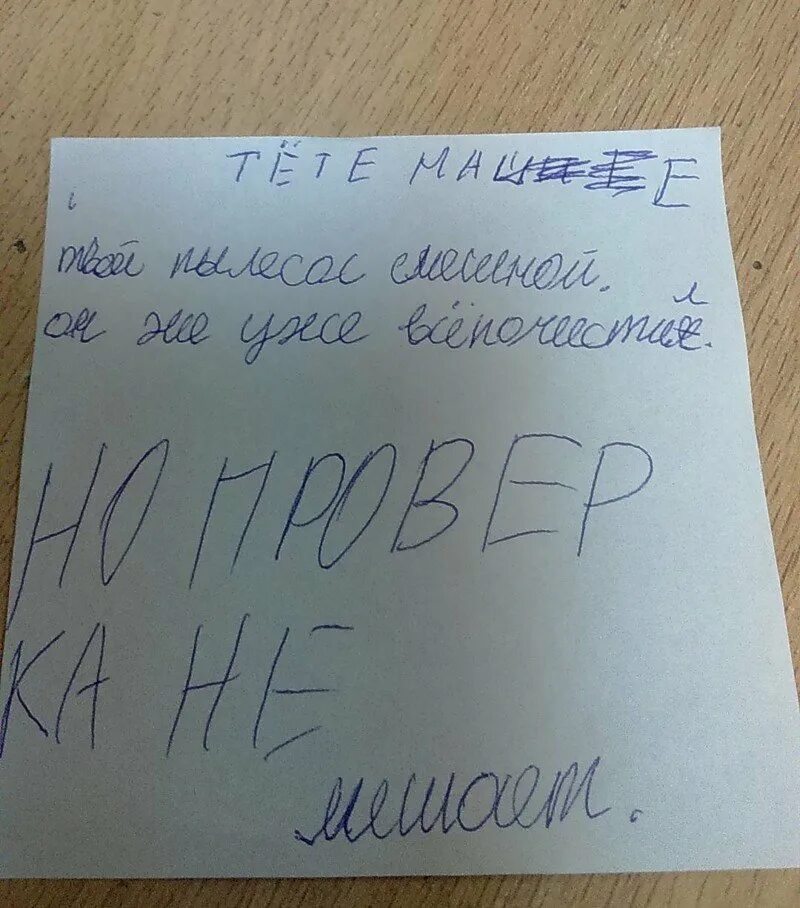 ТЁТЕ МАШЕ
твой пылесос смешной.
он же уже всёпочистил.
НО ПРОВЕР
КА НЕ
мешает.